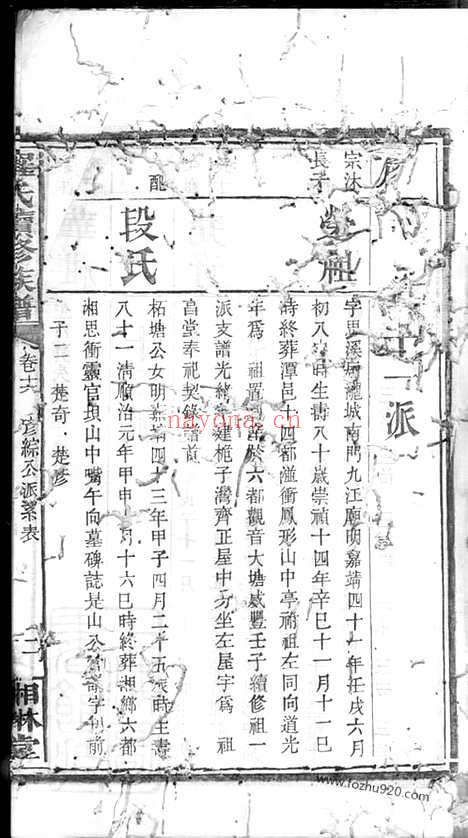 十一派
宗沐
長子
字思溪居瀧城南門九江廟明嘉靖四十一年壬戌六月
初八 時生壽八十歲崇禎十四年辛巳十一月十一巳
時終葬潭邑 四都溢衝鳳形山中亭祔祖左同向道光
年爲 祖置 於六都觀音大塘咸豐壬子續修祖一
派支譜光緒 建梔子灣齊正屋中 坐左屋宇爲 祖
昌堂奉祀契 前
配
段氏
柘塘公女明嘉靖四十三年甲子四月二十五 時生壽
八十一清順治元年甲申 月十六巳時終葬湘鄉六都
湘思衝靈官垻山中嘴午向墓碑誌是山公 前
子二 楚奇 楚彥
氏續修族譜
卷十六 彥綜公派系表
二
湘林堂
nayona.cn
www.fozhu920.com